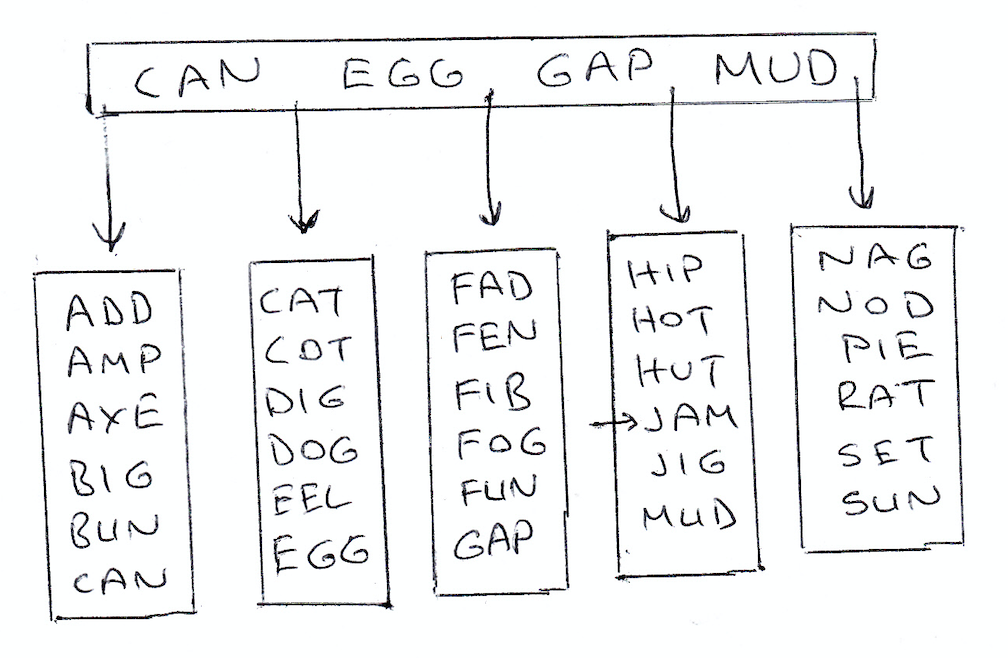 CAN EGG GAP MUD
ADD
AMP
AXE
BIG
BUN
CAN
CAT
COT
DIG
DOG
EEL
EGG
FAD
FEN
FIB
FOG
FUN
GAP
HIP
HOT
HUT
JAM
JIG
MUD
NAG
NOD
PIE
RAT
SET
SUN